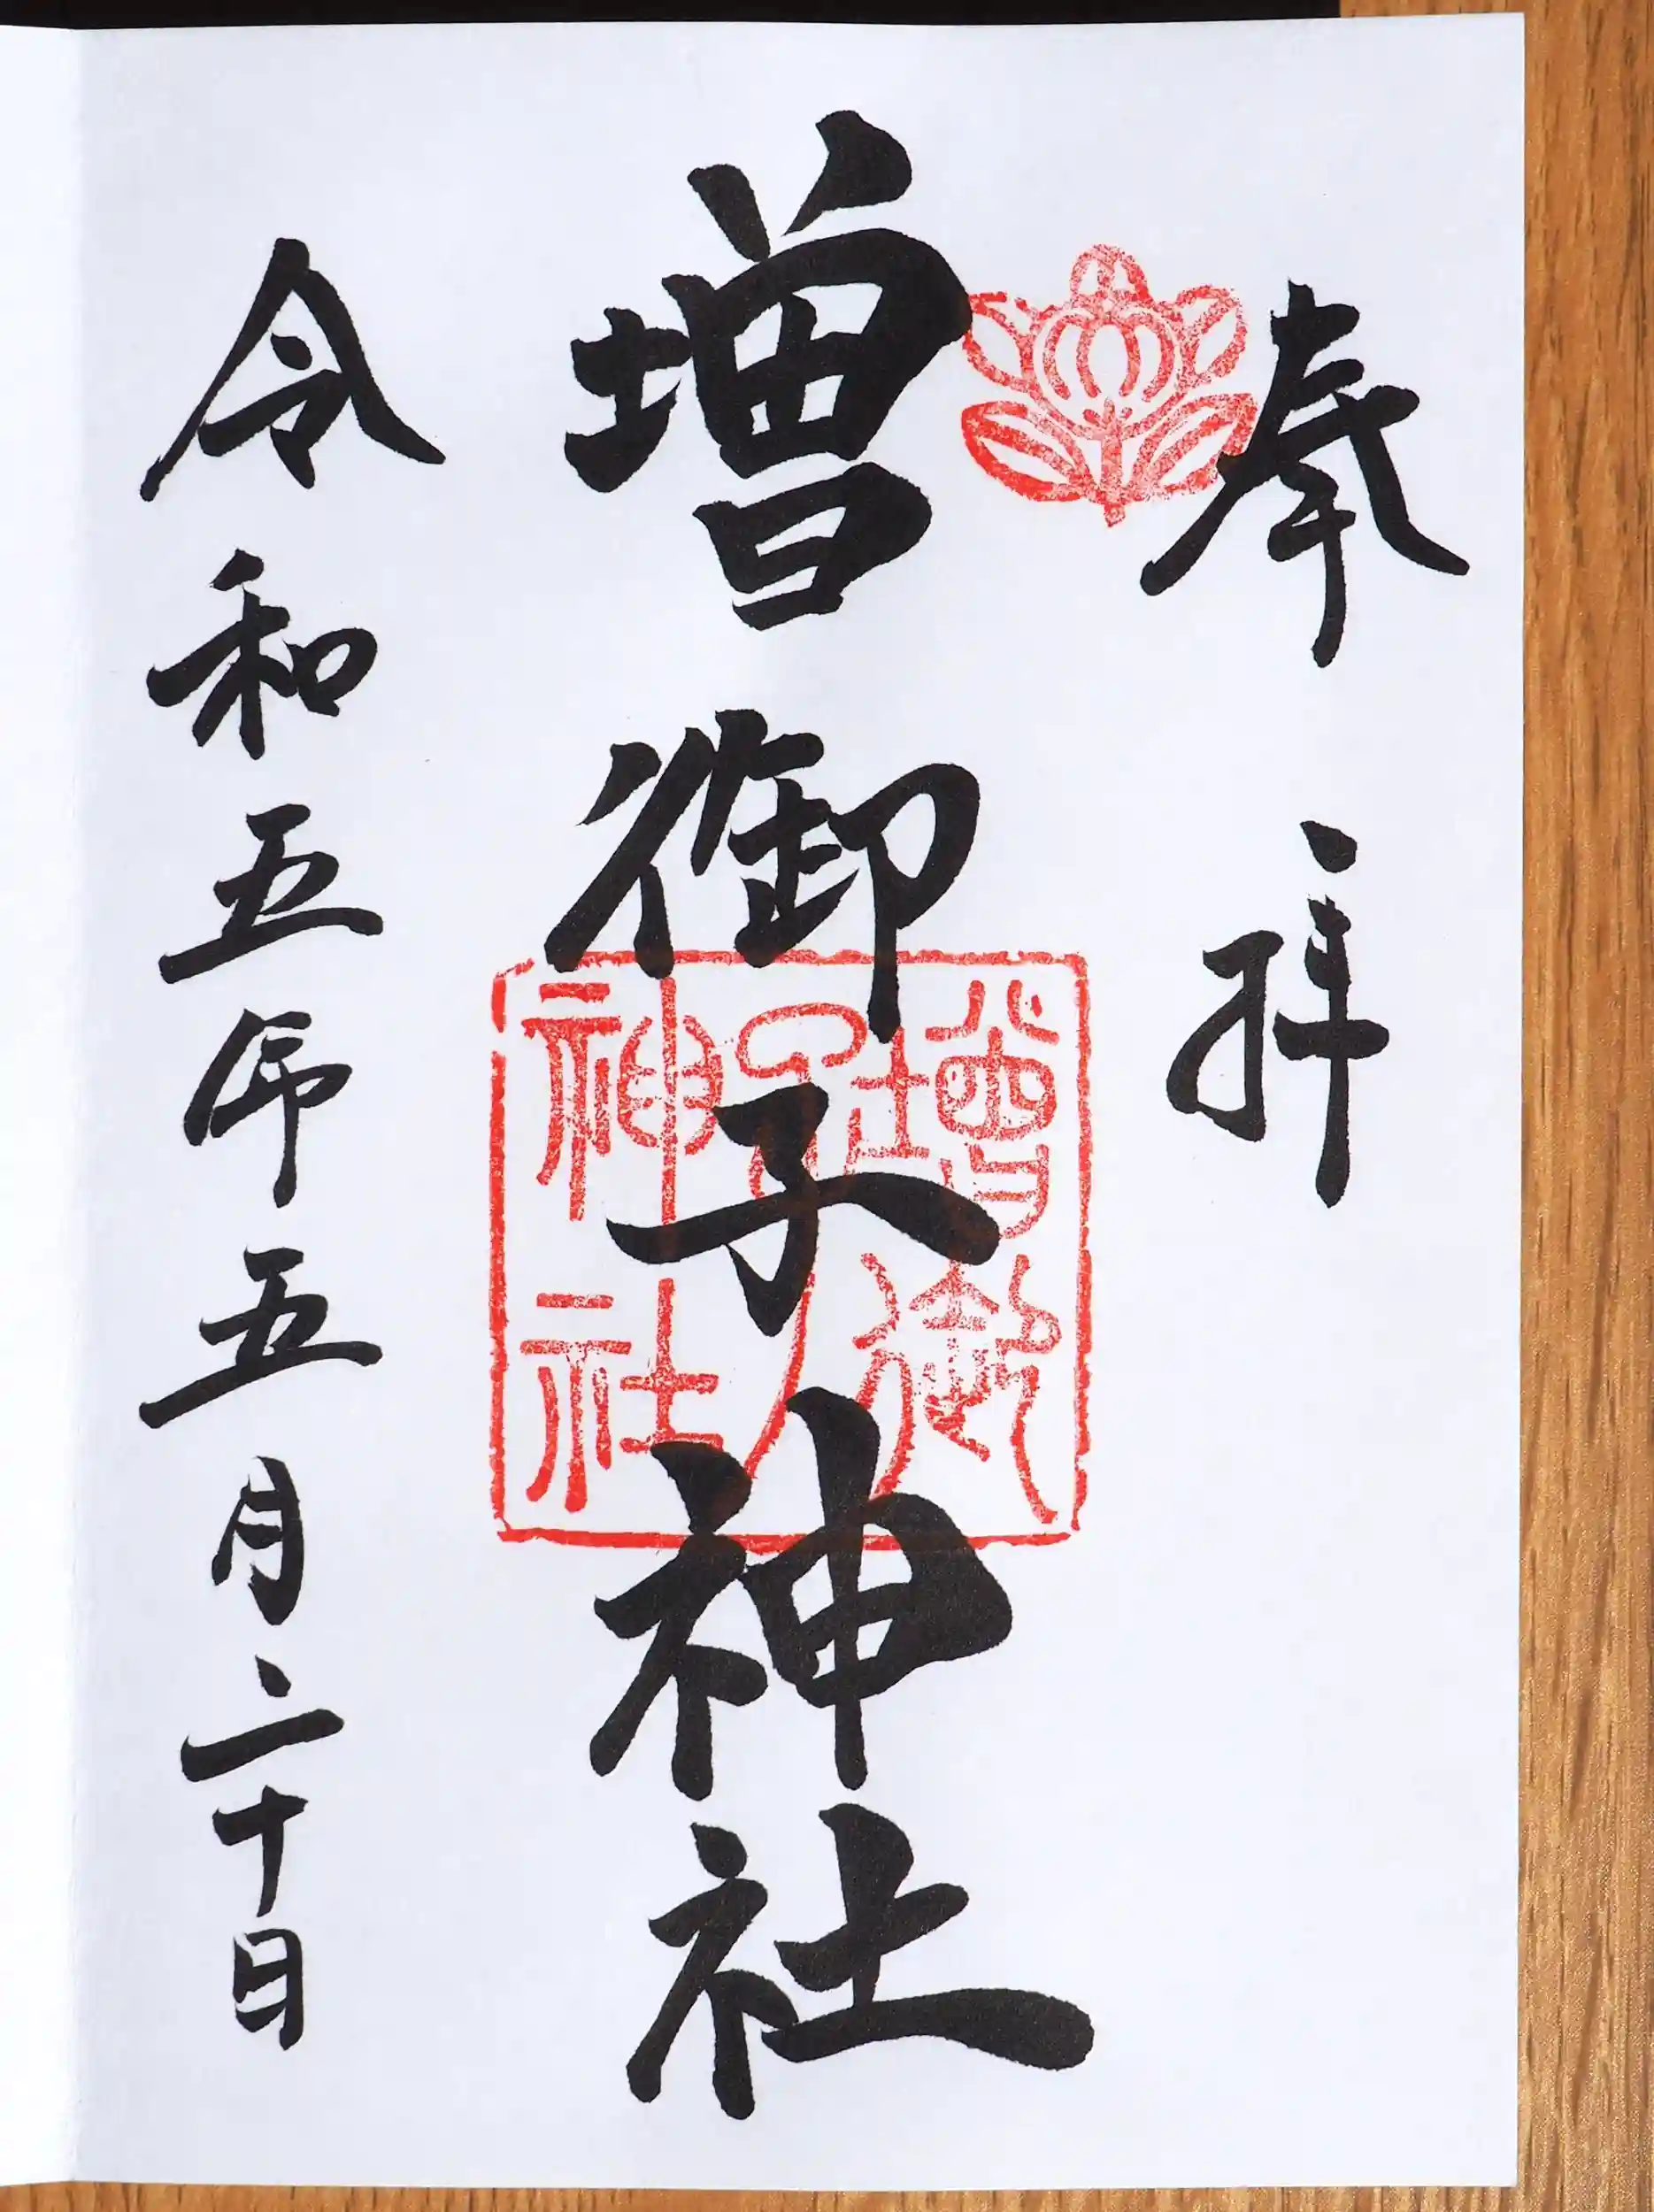 奉拝
増御子神社
増御子神社
令和五年五月二十日